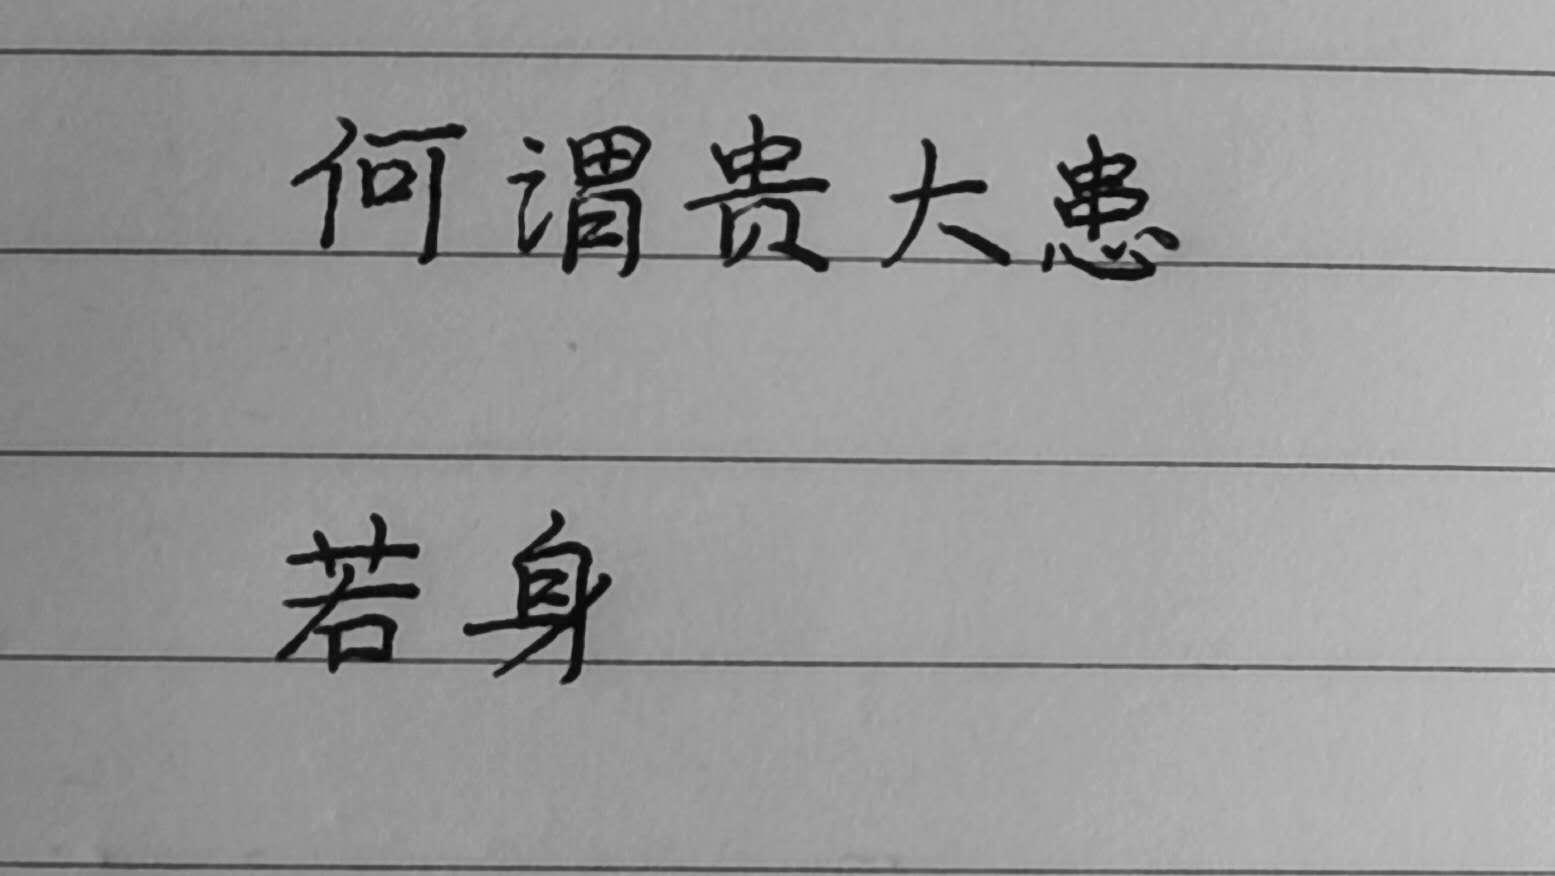 何谓贵大患
若身